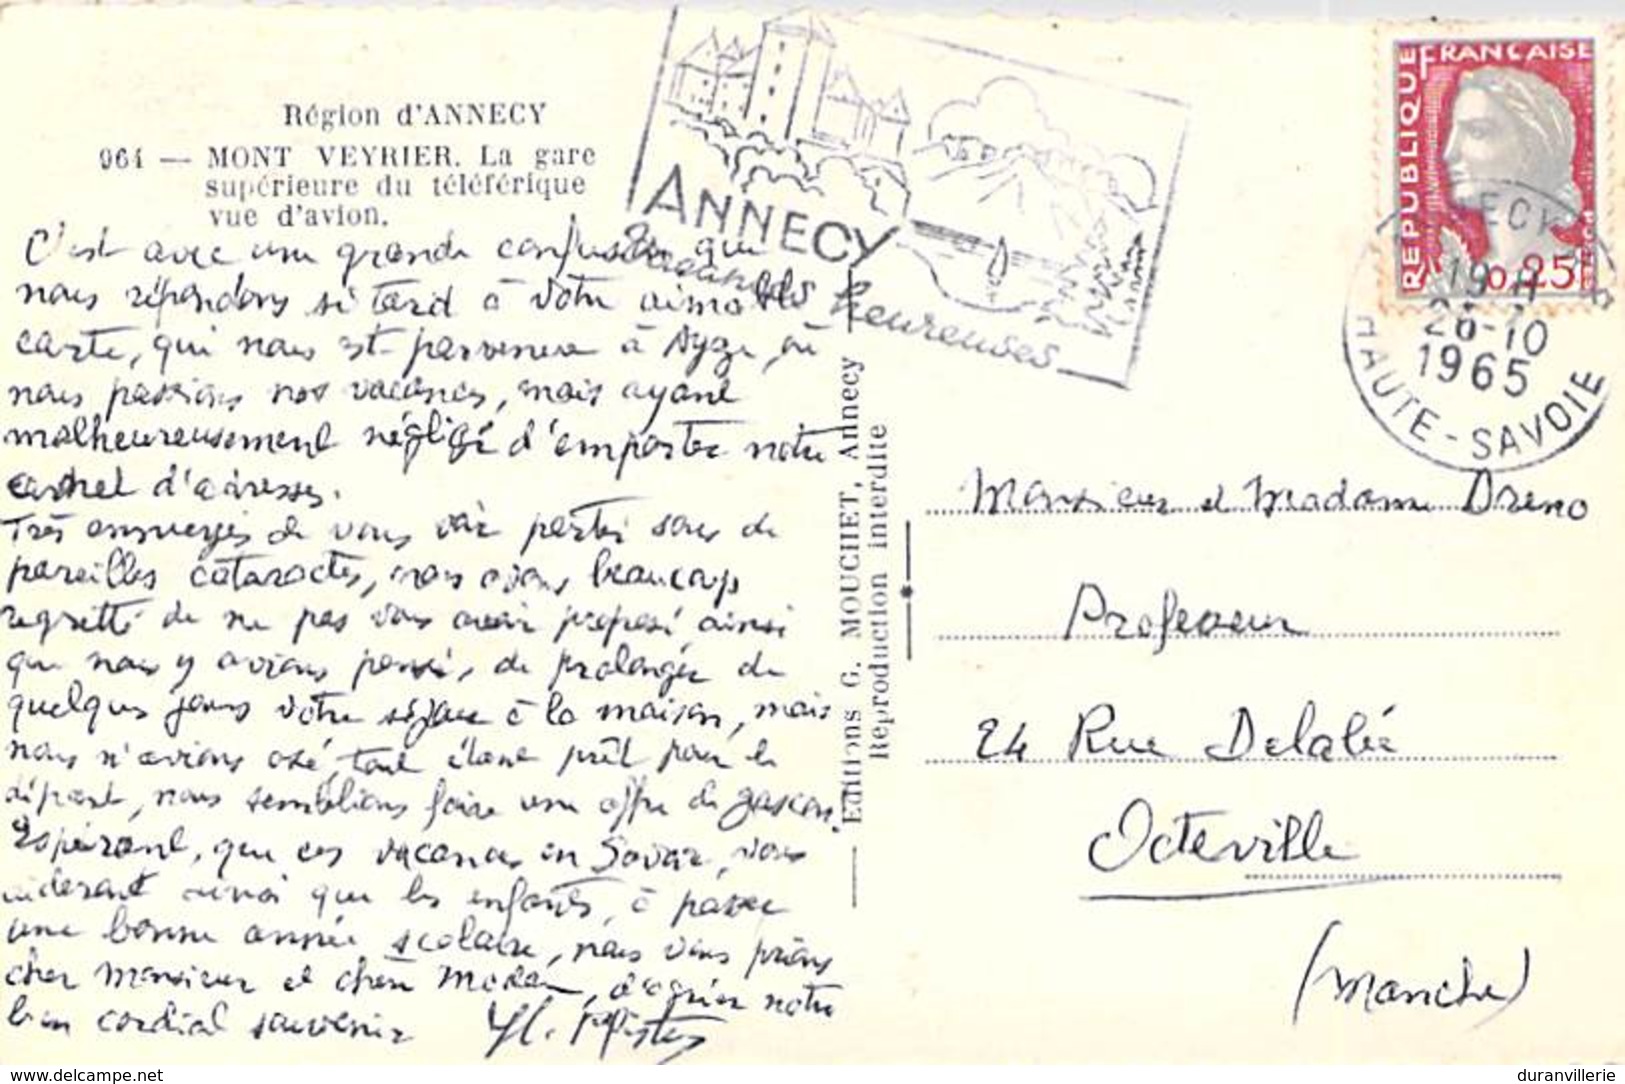 Région d'ANNECY
964 — MONT VEYRIER. La gare
supérieure du téléférique
vue d'avion.
C'est avec une grande confusion que
nous répondons si tard à votre aimable
carte, qui nous est parvenue à Ayze, où
nous passions nos vacances, mais ayant
malheureusement négligé d'emporter notre
carnet d'adresses.
Très ennuyés de vous voir partir sous de
pareilles cataractes, nous avons beaucoup
regretté de ne pas vous avoir proposé ainsi
que nous y avions pensé, de prolonger de
quelques jours votre séjour à la maison, mais
nous n'avions osé, tout étant prêt pour le
départ, nous semblions faire une offre de gascon.
Espérant, que ces vacances en Savoie, vous
aideront ainsi que les enfants, à passer
une bonne année scolaire, nous vous prions
cher Monsieur et chère Madame, d'agréer notre
bon cordial souvenir
Editions G. MOUCHET, Annecy
Reproduction interdite
ANNECY
Vacances heureuses
REPUBLIQUE FRANCAISE
0,25
ANNECY
19 H
26-10
1965
HAUTE-SAVOIE
Monsieur et Madame Dreno
Professeur
24 Rue Delalée
Octeville
(Manche)
www.delcampe.net
duranvillerie